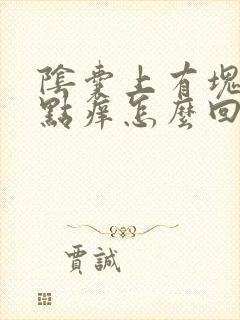 陰囊上有塊
點癢怎麼回
賈誠